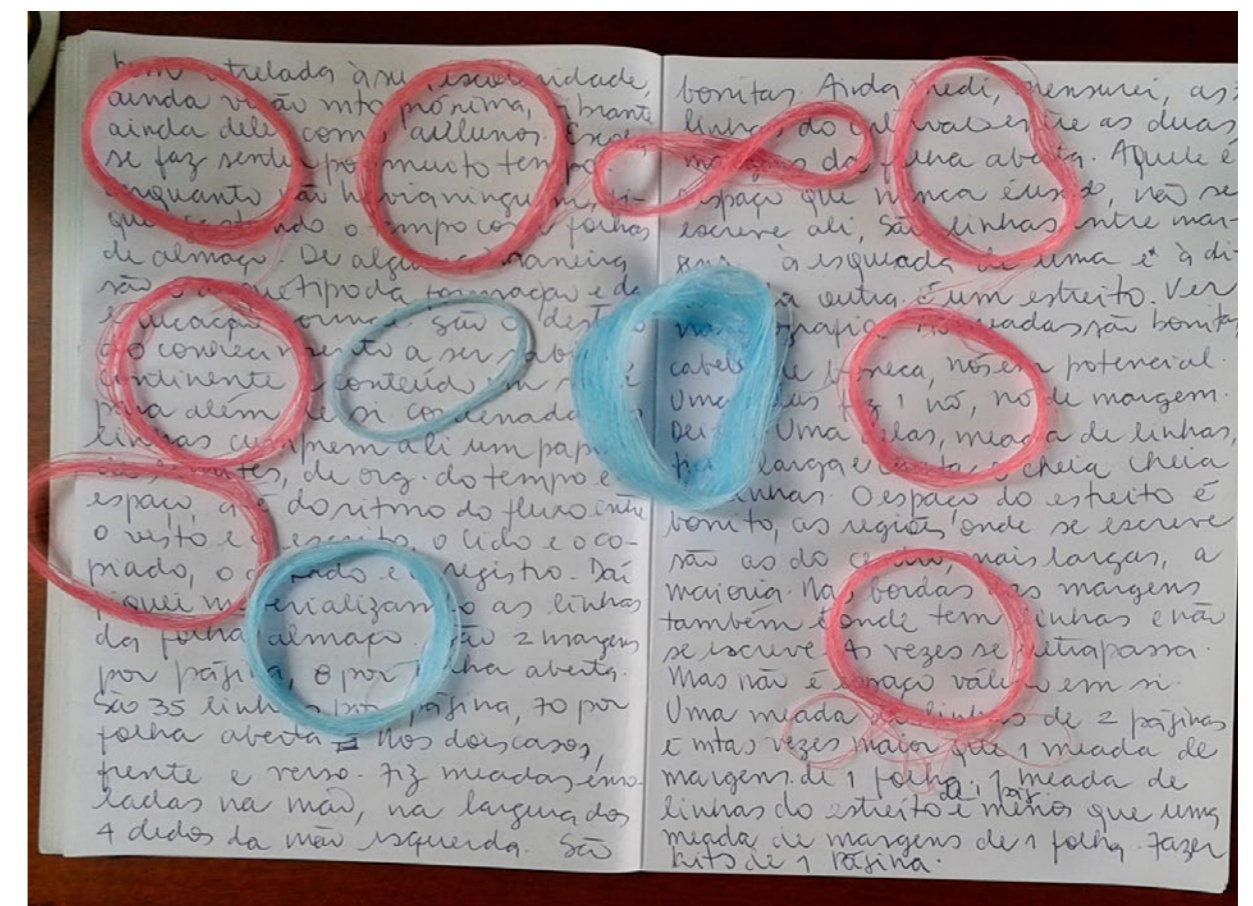 bem atrelada à su escolaridade,
ainda vi ão mto próxima, vibrante
ainda dele como alunos. Escol
se faz sentir por muito tempo.
Enquanto não havia ninguém, fi-
quei o tempo com folhas
de almaço. De alguma maneira
são o arquétipo da formação e da
educação formal. São o destino
do conhecimento a ser sab
continente e conteúdo em si e
para além de si coordenada
linhas cumprem ali um pap
de org. do tempo e
espaço, do ritmo do fluxo entre
o visto e o escrito, o lido e o co-
piado, o e o registro. Daí
fiquei materializando as linhas
da folha almaço. São 2 margens
por página, 8 por folha aberta.
São 35 linhas por página, 70 por
folha aberta. Nos dois casos,
frente e verso. Fiz meadas enro-
ladas na mão, na largura dos
4 dedos da mão esquerda. São
bonitas. Ainda medi, mensurei, as
linhas do intervalo entre as duas
margens da folha aberta. Aquele é
espaço que nunca é usado, não se
escreve ali, são linhas entre mar-
gens, à esquerda de uma e à di-
outra. É um estreito. Ver
na meadas são bonitas,
cabelo de boneca, nós em potencial.
Uma fiz 1 nó, nó de margem.
Uma delas, meada de linhas,
larga e cheia cheia
linhas. O espaço do estreito é
bonito, as regiões onde se escreve
são as do centro, mais largas, a
maioria. Nas bordas as margens
também é onde tem linhas e não
se escreve. Às vezes se ultrapassa.
Mas não é espaço válido em si.
Uma meada de linhas de 2 páginas
é mtas vezes maior que 1 meada de
margens de 1 folha. 1 meada de
linhas do estreito de 1 pág. é menos que uma
meada de margens de 1 folha. Fazer
kits de 1 página.